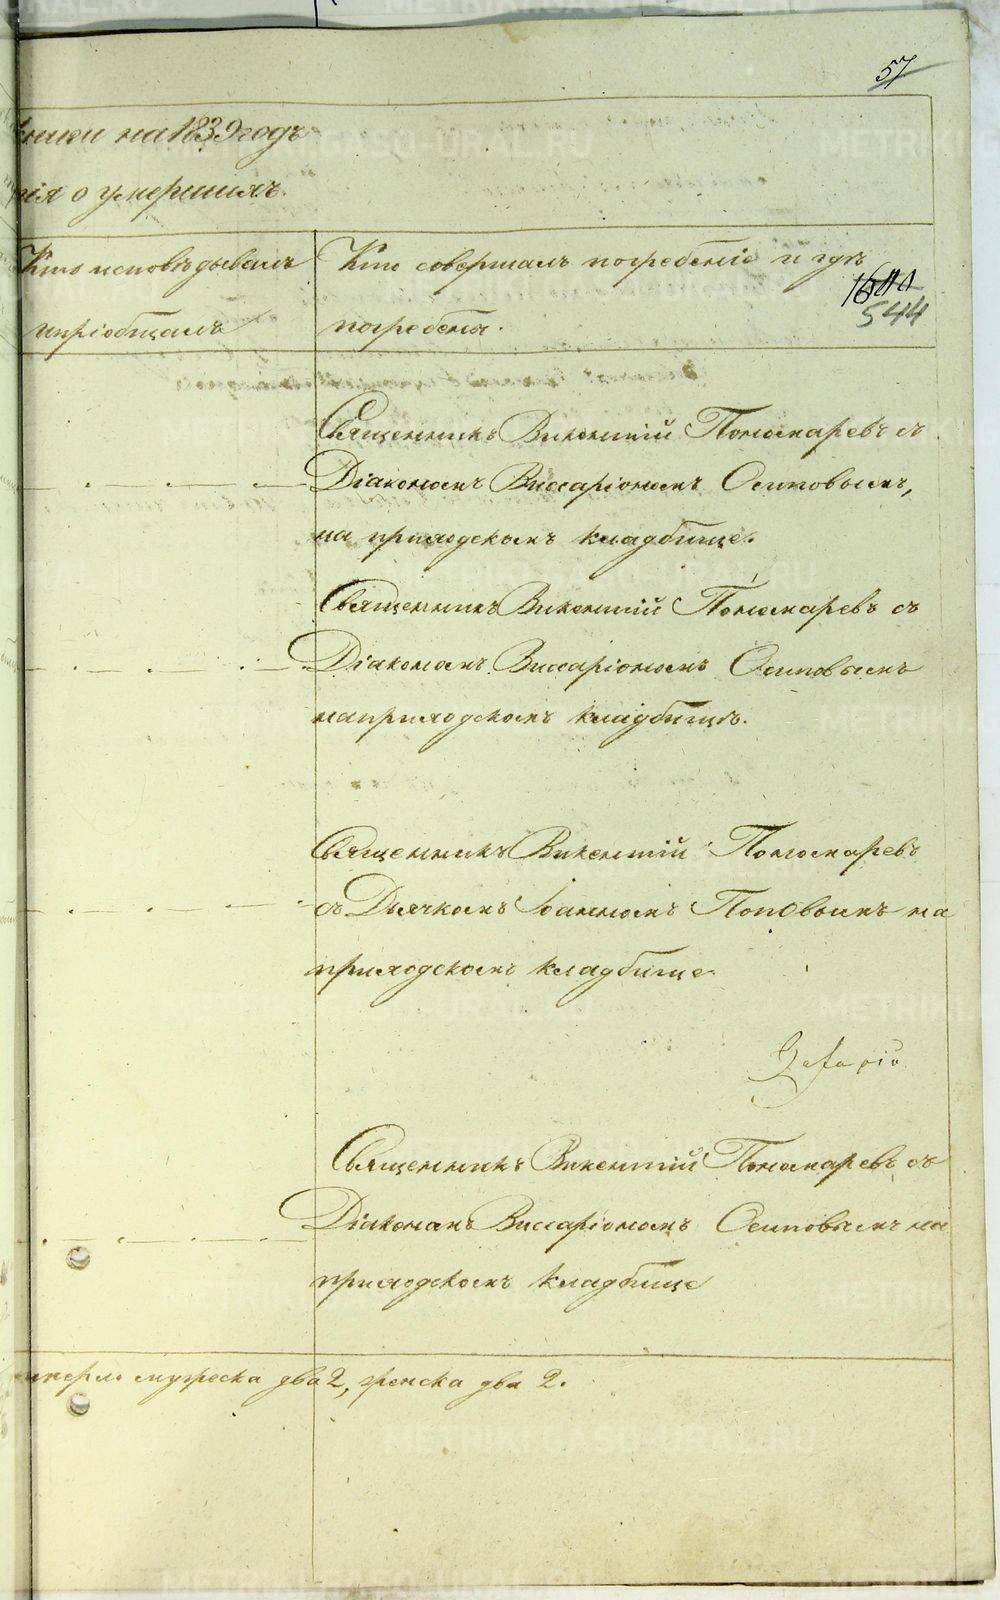 57
на 1839 годъ
о умершихъ.
Кто исповѣдывалъ
и пріобщалъ
Кто совершалъ погребеніе и гдѣ
погребены.
544
Священникъ Викентій Пономаревъ съ
Діакономъ Виссаріономъ Осиповымъ,
на приходскомъ кладбище.
Священникъ Викентій Пономаревъ съ
Діакономъ Виссаріономъ Осиповымъ
на приходскомъ кладбищѣ.
Священникъ Викентій Пономаревъ
съ Дьячкомъ Іоанномъ Поповымъ на
приходскомъ кладбище
Священникъ Викентій Пономаревъ съ
Діакономъ Виссаріономъ Осиповымъ на
приходскомъ кладбище
мужеска два 2, женска два 2.
METRIKI.GASO-URAL.RU